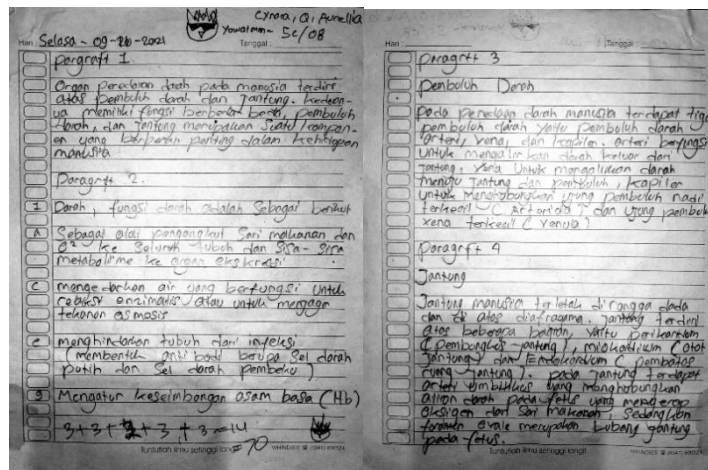 Cynara, Q, Aurellia
Yowatman - 5c/08
Hari : Selasa - 09-2021
Tanggal :
pargraft 1
Organ peredaran darah pada manusia terdiri
atas pembuluh darah dan jantung. kedean-
ya memiliki fungsi berbeda, pembuluh
darah, dan jantung merupakan suatu kompon-
en yang berperan penting dalam kehidupan
manusia
Paragrft 2.
1 Darah, fungsi darah adalah sebagai berikut
A Sebagai alat pengangkut sari makanan dan
O² ke seluruh tubuh dan sisa-sisa
metabolisme ke organ ekskresi
C mengedarkan air yang berfungsi untuk
reaksi enzimatis atau untuk menjaga
tekanan osmosis
e menghindarkan tubuh dari infeksi
(membentuk anti bodi berupa sel darah
putih dan sel darah pembeku)
g Mengatur keseimbangan asam basa (Hb)
3+3+2+3+3=14
=70
Tuntutlah ilmu setinggi langit
Hari :
Tanggal :
Paragrft 3
pembuluh Darah
Pada peredaran darah manusia terdapat tiga
pembuluh darah yaitu pembuluh darah
arteri, vena, dan kapiler. arteri berfungsi
untuk mengalirkan darah keluar dari
jantung. vena untuk mengalirkan darah
menuju jantung dan pembuluh, kapiler
untuk menghubungkan ujung pembuluh nadi
terkecil (Arteriola) dan ujung pembuluh
xena terkecil (venula)
Paragrft 4
Jantung
Jantung manusia terletak dirongga dada
dan di atas diafragma. jantung terdiri
atas beberapa bagian, yaitu perikardium
(pembungkus jantung), miokardium (otot
jantung) dan Endokardium (pembatas
ruang jantung). pada jantung terdapat
arteri umbilikus yang menghubungkan
aliran darah pada fetus yang menyerap
oksigen dan sari makanan, sedangkan
foramen ovale merupakan lubang jantung
pada fetus.
Tuntutlah ilmu setinggi langit